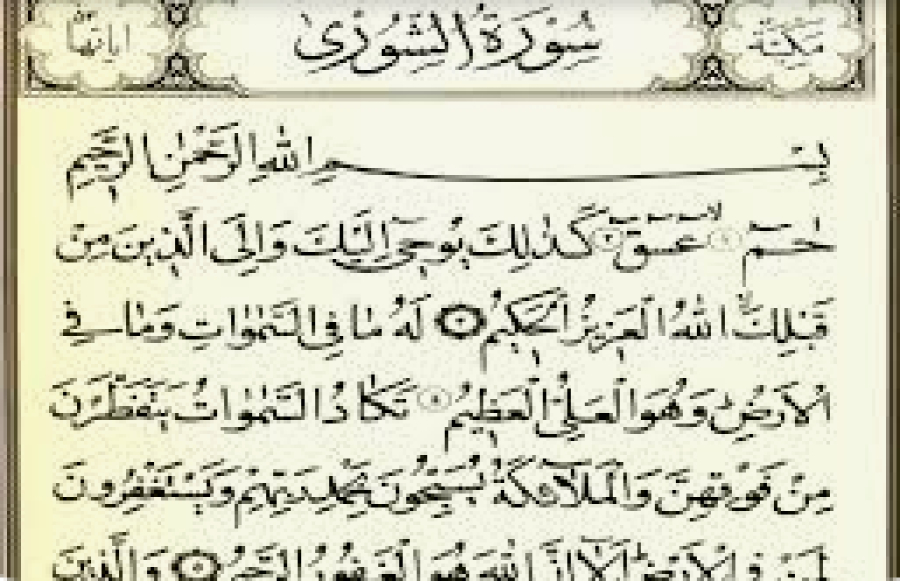 مكية سورة الشورى اياتها
بِسْمِ اللّٰهِ الرَّحْمٰنِ الرَّحِيمِ
حٰمٓ ﴿١﴾ عٓسٓقٓ ﴿٢﴾ كَذٰلِكَ يُوحٖٓي اِلَيْكَ وَاِلَى الَّذٖينَ مِنْ
قَبْلِكَۙ اللّٰهُ الْعَزٖيزُ الْحَكٖيمُ ﴿٣﴾ لَهُ مَا فِي السَّمٰوَاتِ وَمَا فِي
الْاَرْضِۜ وَهُوَ الْعَلِيُّ الْعَظٖيمُ ﴿٤﴾ تَكَادُ السَّمٰوَاتُ يَتَفَطَّرْنَ
مِنْ فَوْقِهِنَّ وَالْمَلٰٓئِكَةُ يُسَبِّحُونَ بِحَمْدِ رَبِّهِمْ وَيَسْتَغْفِرُونَ
لِمَنْ فِي الْاَرْضِۜ اَلَٓا اِنَّ اللّٰهَ هُوَ الْغَفُورُ الرَّحٖيمُ ﴿٥﴾ وَالَّذٖينَ